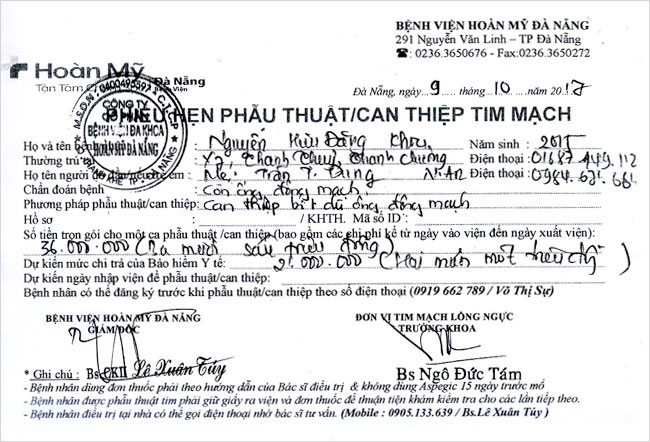 BỆNH VIỆN HOÀN MỸ ĐÀ NẴNG
291 Nguyễn Văn Linh – TP Đà Nẵng
☎: 0236.3650676 - Fax:0236.3650272
Hoàn Mỹ
Đà Nẵng
Tận Tâm
Bệnh Viện
M.S.D.N: 0400495897 C.T.C.P
CÔNG TY
BỆNH VIỆN ĐA KHOA
HOÀN MỸ ĐÀ NẴNG
Đà Nẵng, ngày...9...tháng...10...năm 2017
PHIẾU HẸN PHẪU THUẬT/CAN THIỆP TIM MẠCH
Họ và tên bệnh nhân: Nguyễn Hữu Đăng Khoa Năm sinh : 2015
Thường trú : X7, Thanh Thuỷ, Thanh Chương Điện thoại :01687 449 112
Họ tên người em : Mẹ: Trần T. N.An Điện thoại :0984.631.661
Chẩn đoán bệnh : Còn ống động mạch
Phương pháp phẫu thuật/can thiệp: Can thiệp bít dù ống động mạch
Hồ sơ : / KHTH. Mã số ID :
Số tiền trọn gói cho một ca phẫu thuật /can thiệp (bao gồm các phí kể từ ngày vào viện đến ngày xuất viện):
36.000.000 (Ba mươi sáu triệu đồng)
Dự kiến mức chi trả của Bảo hiểm Y tế: 21.000.000 (Hai mươi mốt triệu)
Dự kiến ngày nhập viện để phẫu thuật/can thiệp:
Bệnh nhân có thể đăng ký trước khi phẫu thuật/can thiệp theo số điện thoại (0919 662 789 / Võ Thị Sự)
BỆNH VIỆN HOÀN MỸ ĐÀ NẴNG
GIÁM ĐỐC
ĐƠN VỊ TIM MẠCH LỒNG NGỰC
TRƯỞNG KHOA
* Ghi chú : Bs.CKII Lê Xuân Túy
Bs Ngô Đức Tám
- Bệnh nhân dùng đơn thuốc phải theo hướng dẫn của Bác sĩ điều trị & không dùng Aspegic 15 ngày trước mổ
- Bệnh nhân được phẫu thuật tim phải giữ giấy ra viện và đơn thuốc để thuận tiện khám kiểm tra cho các lần tiếp theo.
- Bệnh nhân điều trị tại nhà có thể gọi điện thoại nhờ bác sĩ tư vấn. (Mobile : 0905.133.639 / Bs.Lê Xuân Túy )